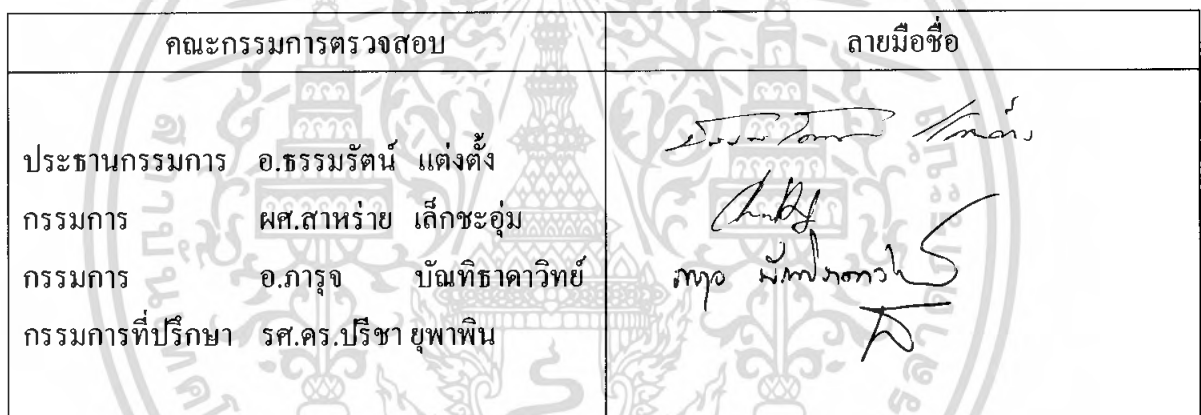 คณะกรรมการตรวจสอบ ลายมือชื่อ
ประธานกรรมการ อ.ธรรมรัตน์ แต่งตั้ง
กรรมการ ผศ.สาหร่าย เล็กชะอุ่ม
กรรมการ อ.ภารุจ บัณทิธาดาวิทย์
กรรมการที่ปรึกษา รศ.ดร.ปรีชา ยุพาพิน